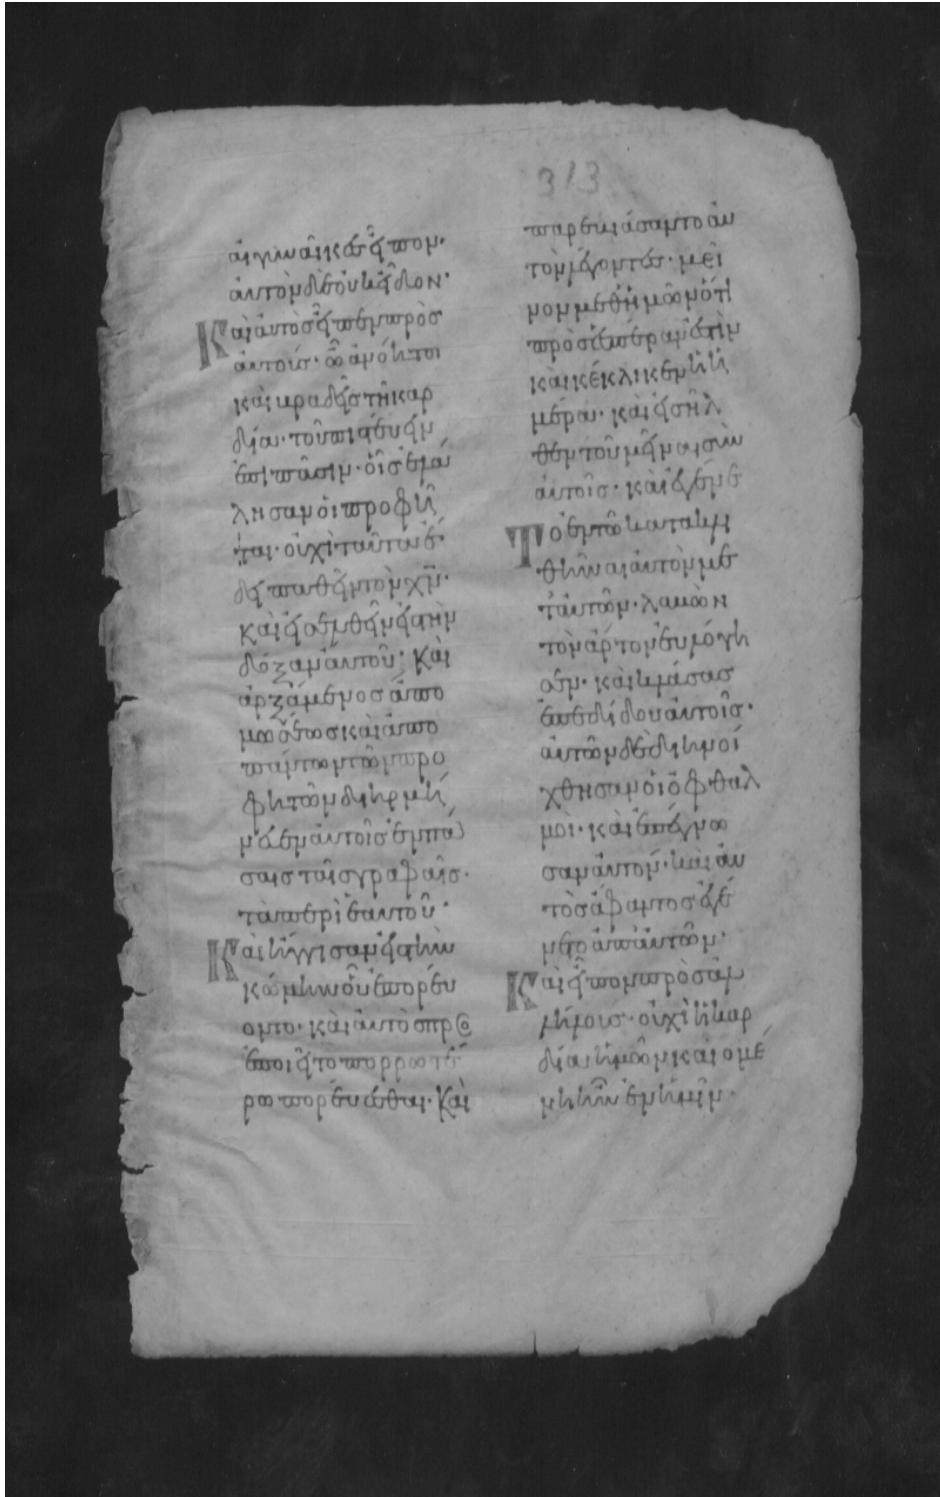 313
αἱ γυναῖκες εἶπον·
αὐτὸν δὲ οὐκ εἶδον·
Καὶ αὐτὸς εἶπεν πρὸς
αὐτούς· ὦ ἀνόητοι
καὶ βραδεῖς τῇ καρ
δίᾳ· τοῦ πιστεύειν
ἐπὶ πᾶσιν· οἷς ἐλά
λησαν οἱ προφῆ
ται· οὐχὶ ταῦτα ἔ
δει παθεῖν τὸν χν̅·
καὶ εἰσελθεῖν εἰς τὴν
δόξαν αὐτοῦ· Καὶ
ἀρξάμενος ἀπὸ
μωσέως καὶ ἀπὸ
πάντων τῶν προ
φητῶν διηρμή
νευεν αὐτοῖς ἐν πά
σαις ταῖς γραφαῖς·
τὰ περὶ ἑαυτοῦ·
Καὶ ἤγγισαν εἰς τὴν
κώμην οὗ ἐπορεύ
οντο· καὶ αὐτὸς προσ
εποιεῖτο πορρωτέ
ρω πορεύεσθαι· Καὶ
παρεβιάσαντο αὐ
τὸν λέγοντες· μεῖ
νον μεθ ἡμῶν ὅτι
πρὸς ἑσπέραν ἐστὶν
καὶ κέκλικεν ἡ ἡ
μέρα· καὶ εἰσῆλ
θεν τοῦ μεῖναι σὺν
αὐτοῖς· καὶ ἐγένε
Το ἐν τῷ κατακλι
θῆναι αὐτὸν με
τ αὐτῶν· λαβὼν
τὸν ἄρτον εὐλόγη
σεν· καὶ κλάσας
ἐπεδίδου αὐτοῖς·
αὐτῶν δὲ διηνοί
χθησαν οἱ ὀφθαλ
μοί· καὶ ἐπέγνω
σαν αὐτόν· καὶ αὐ
τὸς ἄφαντος ἐγέ
νετο ἀπ αὐτῶν·
Καὶ εἶπον πρὸς ἀλ
λήλους· οὐχὶ ἡ καρ
δία ἡμῶν καιομέ
νη ἦν ἐν ἡμῖν·